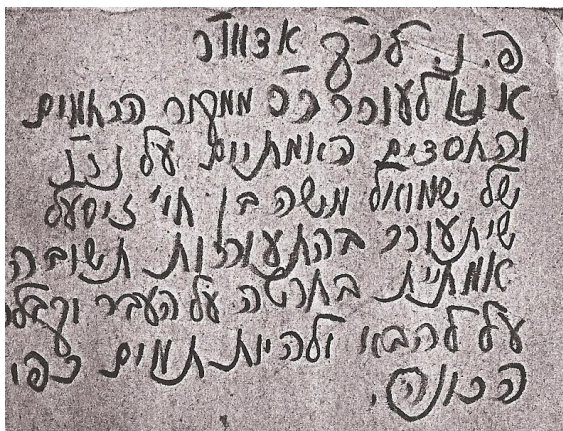 פ.נ. לכ״ק אדמו״ר
אנא לעורר ר״ר ממקור הרחמים
והחסדים האמתיים על נרנ
של שמואל משה בן חי׳ זיסעל
שיתעורר בהתעוררות תשובה
אמתית בחרטה על העבר וקבלה
על להבא ולהיות תמים כפי
הכונה.